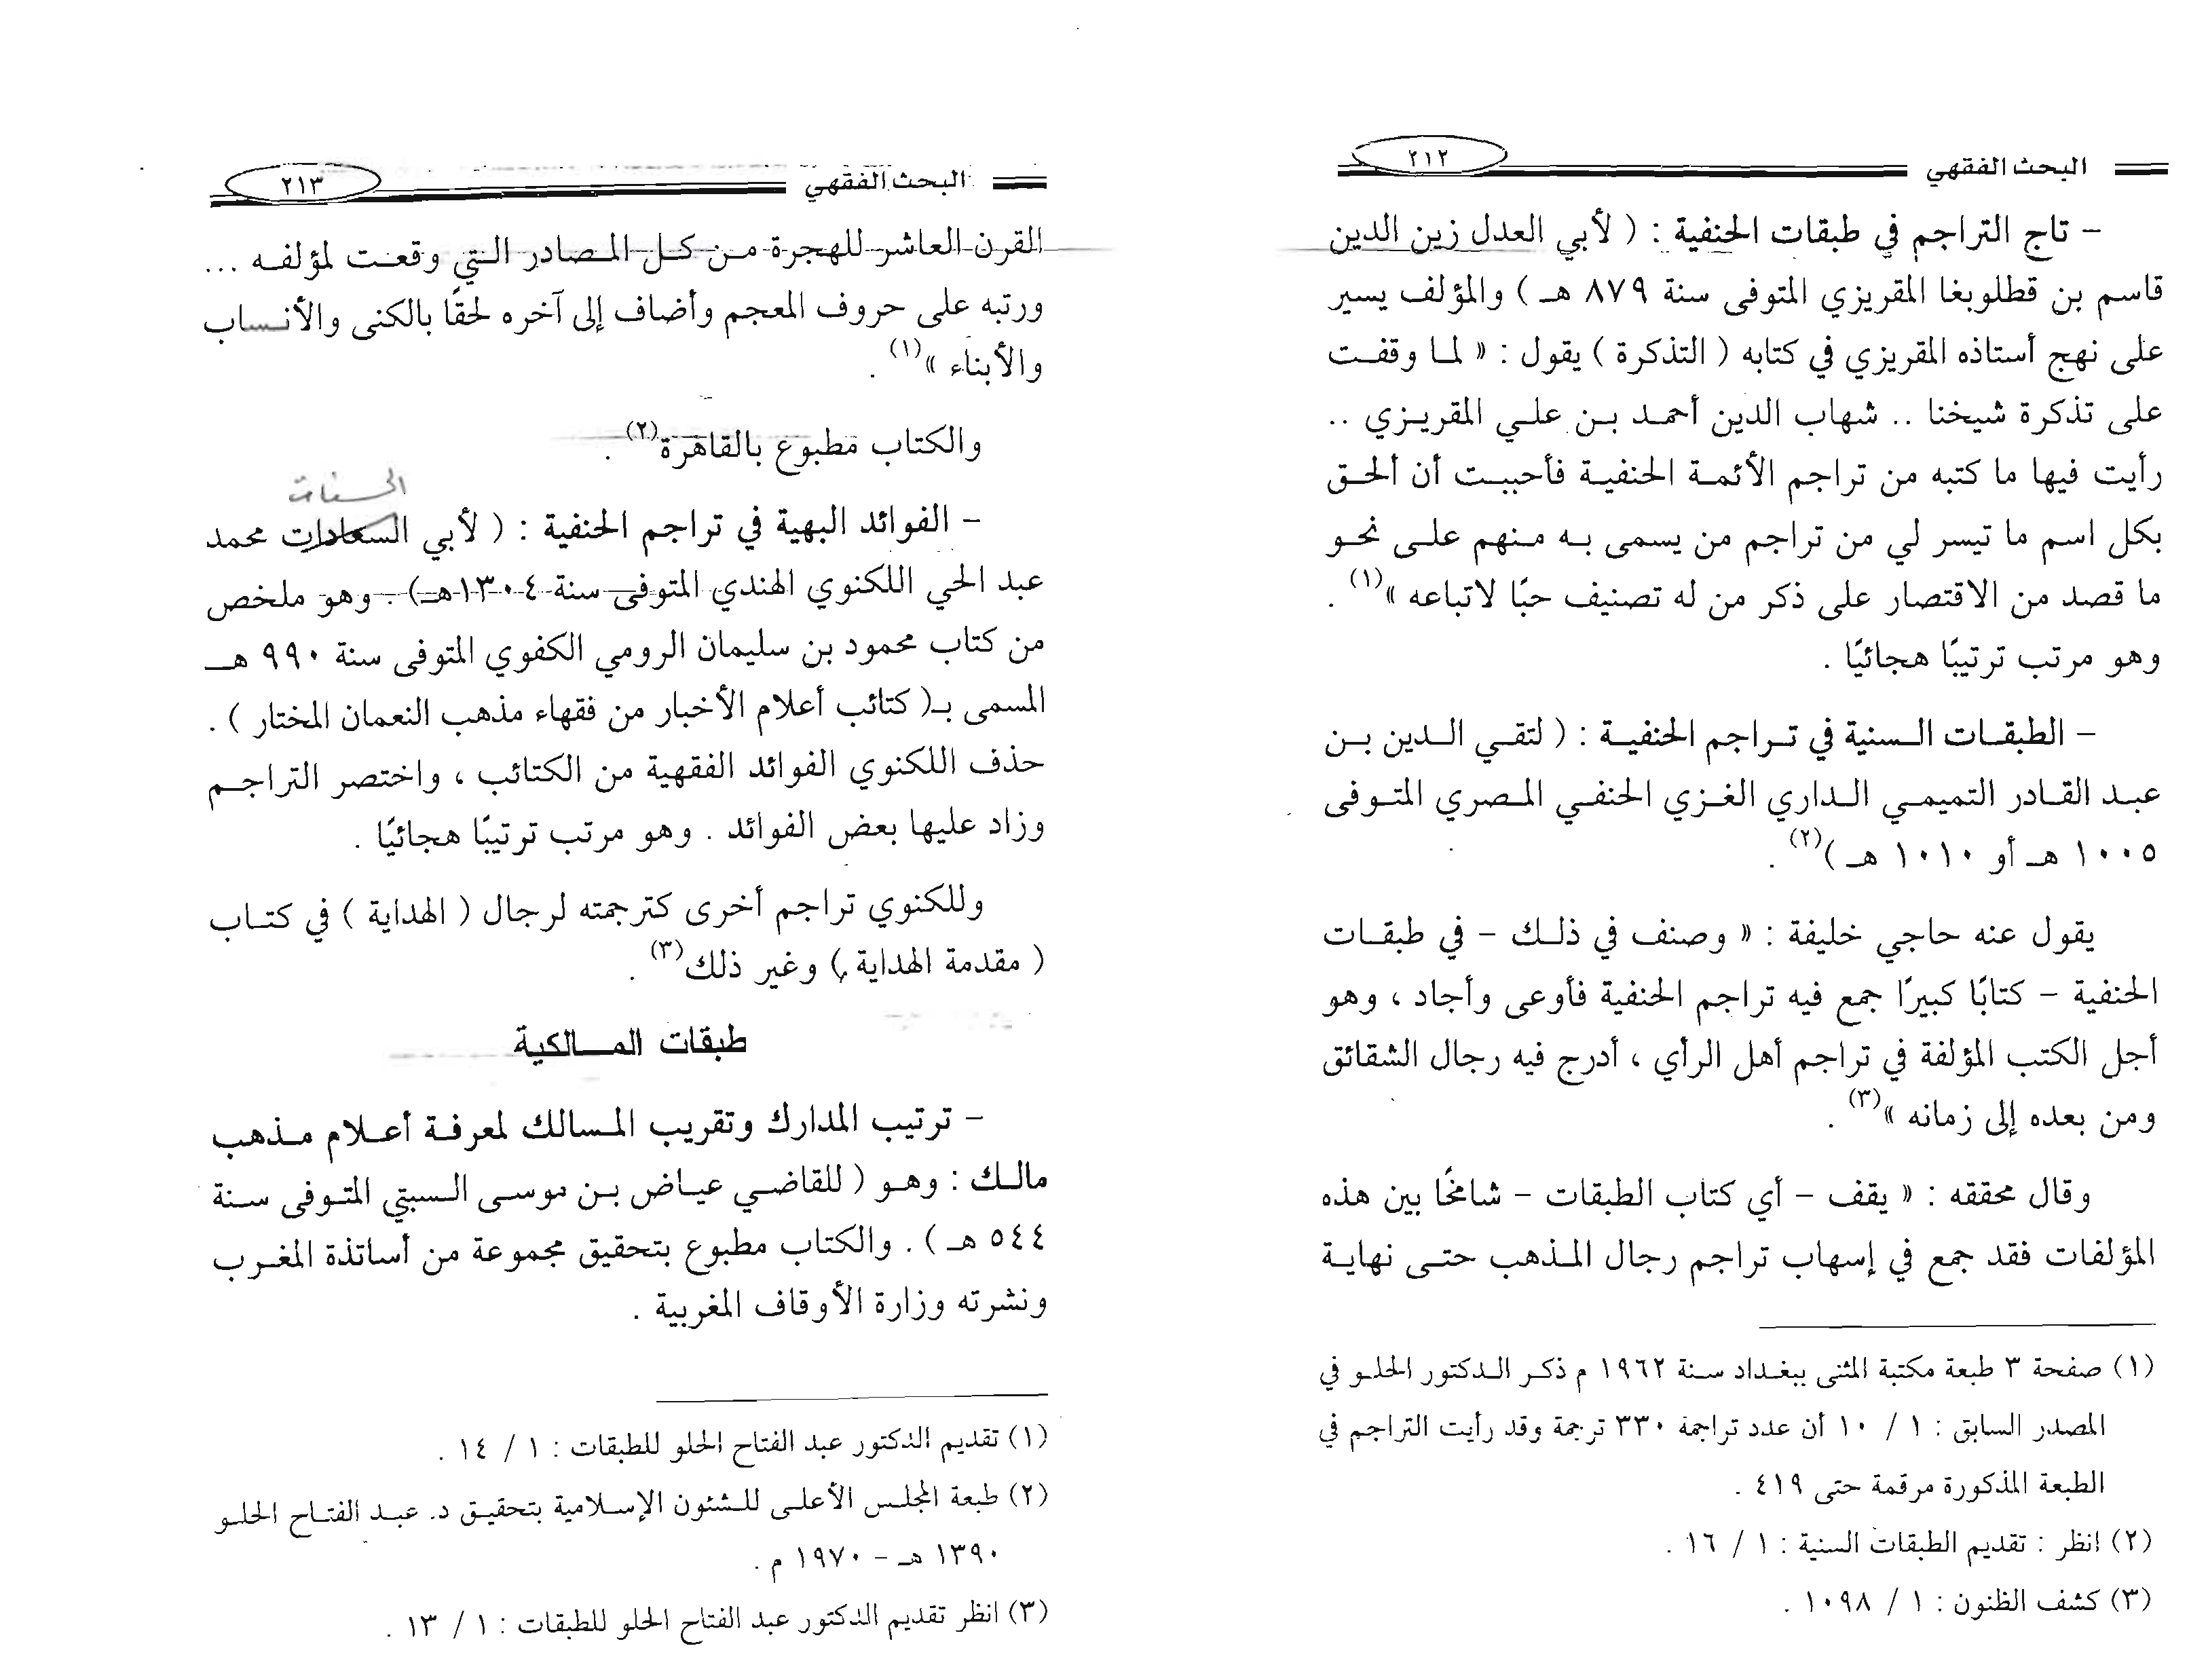 البحث الفقهي ٢١٢
- تاج التراجم في طبقات الحنفية : ( لأبي العدل زين الدين
قاسم بن قطلوبغا المقريزي المتوفى سنة ٨٧٩ هـ ) والمؤلف يسير
على نهج أستاذه المقريزي في كتابه ( التذكرة ) يقول : « لما وقفت
على تذكرة شيخنا .. شهاب الدين أحمد بن علي المقريزي ..
رأيت فيها ما كتبه من تراجم الأئمة الحنفية فأحببت أن ألحق
بكل اسم ما تيسر لي من تراجم من يسمى به منهم على نحو
ما قصد من الاقتصار على ذكر من له تصنيف حبًا لاتباعه »(١) .
وهو مرتب ترتيبًا هجائيًا .
- الطبقات السنية في تراجم الحنفية : ( لتقي الدين بن
عبد القادر التميمي الداري الغزي الحنفي المصري المتوفى
١٠٠٥ هـ أو ١٠١٠ هـ )(٢) .
يقول عنه حاجي خليفة : « وصنف في ذلك - في طبقات
الحنفية - كتابًا كبيرًا جمع فيه تراجم الحنفية فأوعى وأجاد ، وهو
أجل الكتب المؤلفة في تراجم أهل الرأي ، أدرج فيه رجال الشقائق
ومن بعده إلى زمانه »(٣) .
وقال محققه : « يقف - أي كتاب الطبقات - شامخًا بين هذه
المؤلفات فقد جمع في إسهاب تراجم رجال المذهب حتى نهاية
(١) صفحة ٣ طبعة مكتبة المثنى ببغداد سنة ١٩٦٢ م ذكر الدكتور الحلو في
المصدر السابق : ١ / ١٠ أن عدد تراجمة ٣٣٠ ترجمة وقد رأيت التراجم في
الطبعة المذكورة مرقمة حتى ٤١٩ .
(٢) انظر : تقديم الطبقات السنية : ١ / ١٦ .
(٣) كشف الظنون : ١ / ١٠٩٨ .
البحث الفقهي ٢١٣
القرن العاشر للهجرة من كل المصادر التي وقعت لمؤلفه ...
ورتبه على حروف المعجم وأضاف إلى آخره لحقًا بالكنى والأنساب
والأبناء »(١) .
والكتاب مطبوع بالقاهرة(٢) .
الحسنات
- الفوائد البهية في تراجم الحنفية : ( لأبي السعادات محمد
عبد الحي اللكنوي الهندي المتوفى سنة ١٣٠٤هـ) . وهو ملخص
من كتاب محمود بن سليمان الرومي الكفوي المتوفى سنة ٩٩٠ هـ
المسمى بـ( كتائب أعلام الأخبار من فقهاء مذهب النعمان المختار ) .
حذف اللكنوي الفوائد الفقهية من الكتائب ، واختصر التراجم
وزاد عليها بعض الفوائد . وهو مرتب ترتيبًا هجائيًا .
وللكنوي تراجم أخرى كترجمته لرجال ( الهداية ) في كتاب
( مقدمة الهداية ) وغير ذلك(٣) .
طبقات المالكية
- ترتيب المدارك وتقريب المسالك لمعرفة أعلام مذهب
مالك : وهو ( للقاضي عياض بن موسى السبتي المتوفى سنة
٥٤٤ هـ ) . والكتاب مطبوع بتحقيق مجموعة من أساتذة المغرب
ونشرته وزارة الأوقاف المغربية .
(١) تقديم الدكتور عبد الفتاح الحلو للطبقات : ١ / ١٤ .
(٢) طبعة المجلس الأعلى للشئون الإسلامية بتحقيق د. عبد الفتاح الحلو
١٣٩٠ هـ - ١٩٧٠ م .
(٣) انظر تقديم الدكتور عبد الفتاح الحلو للطبقات : ١ / ١٣ .